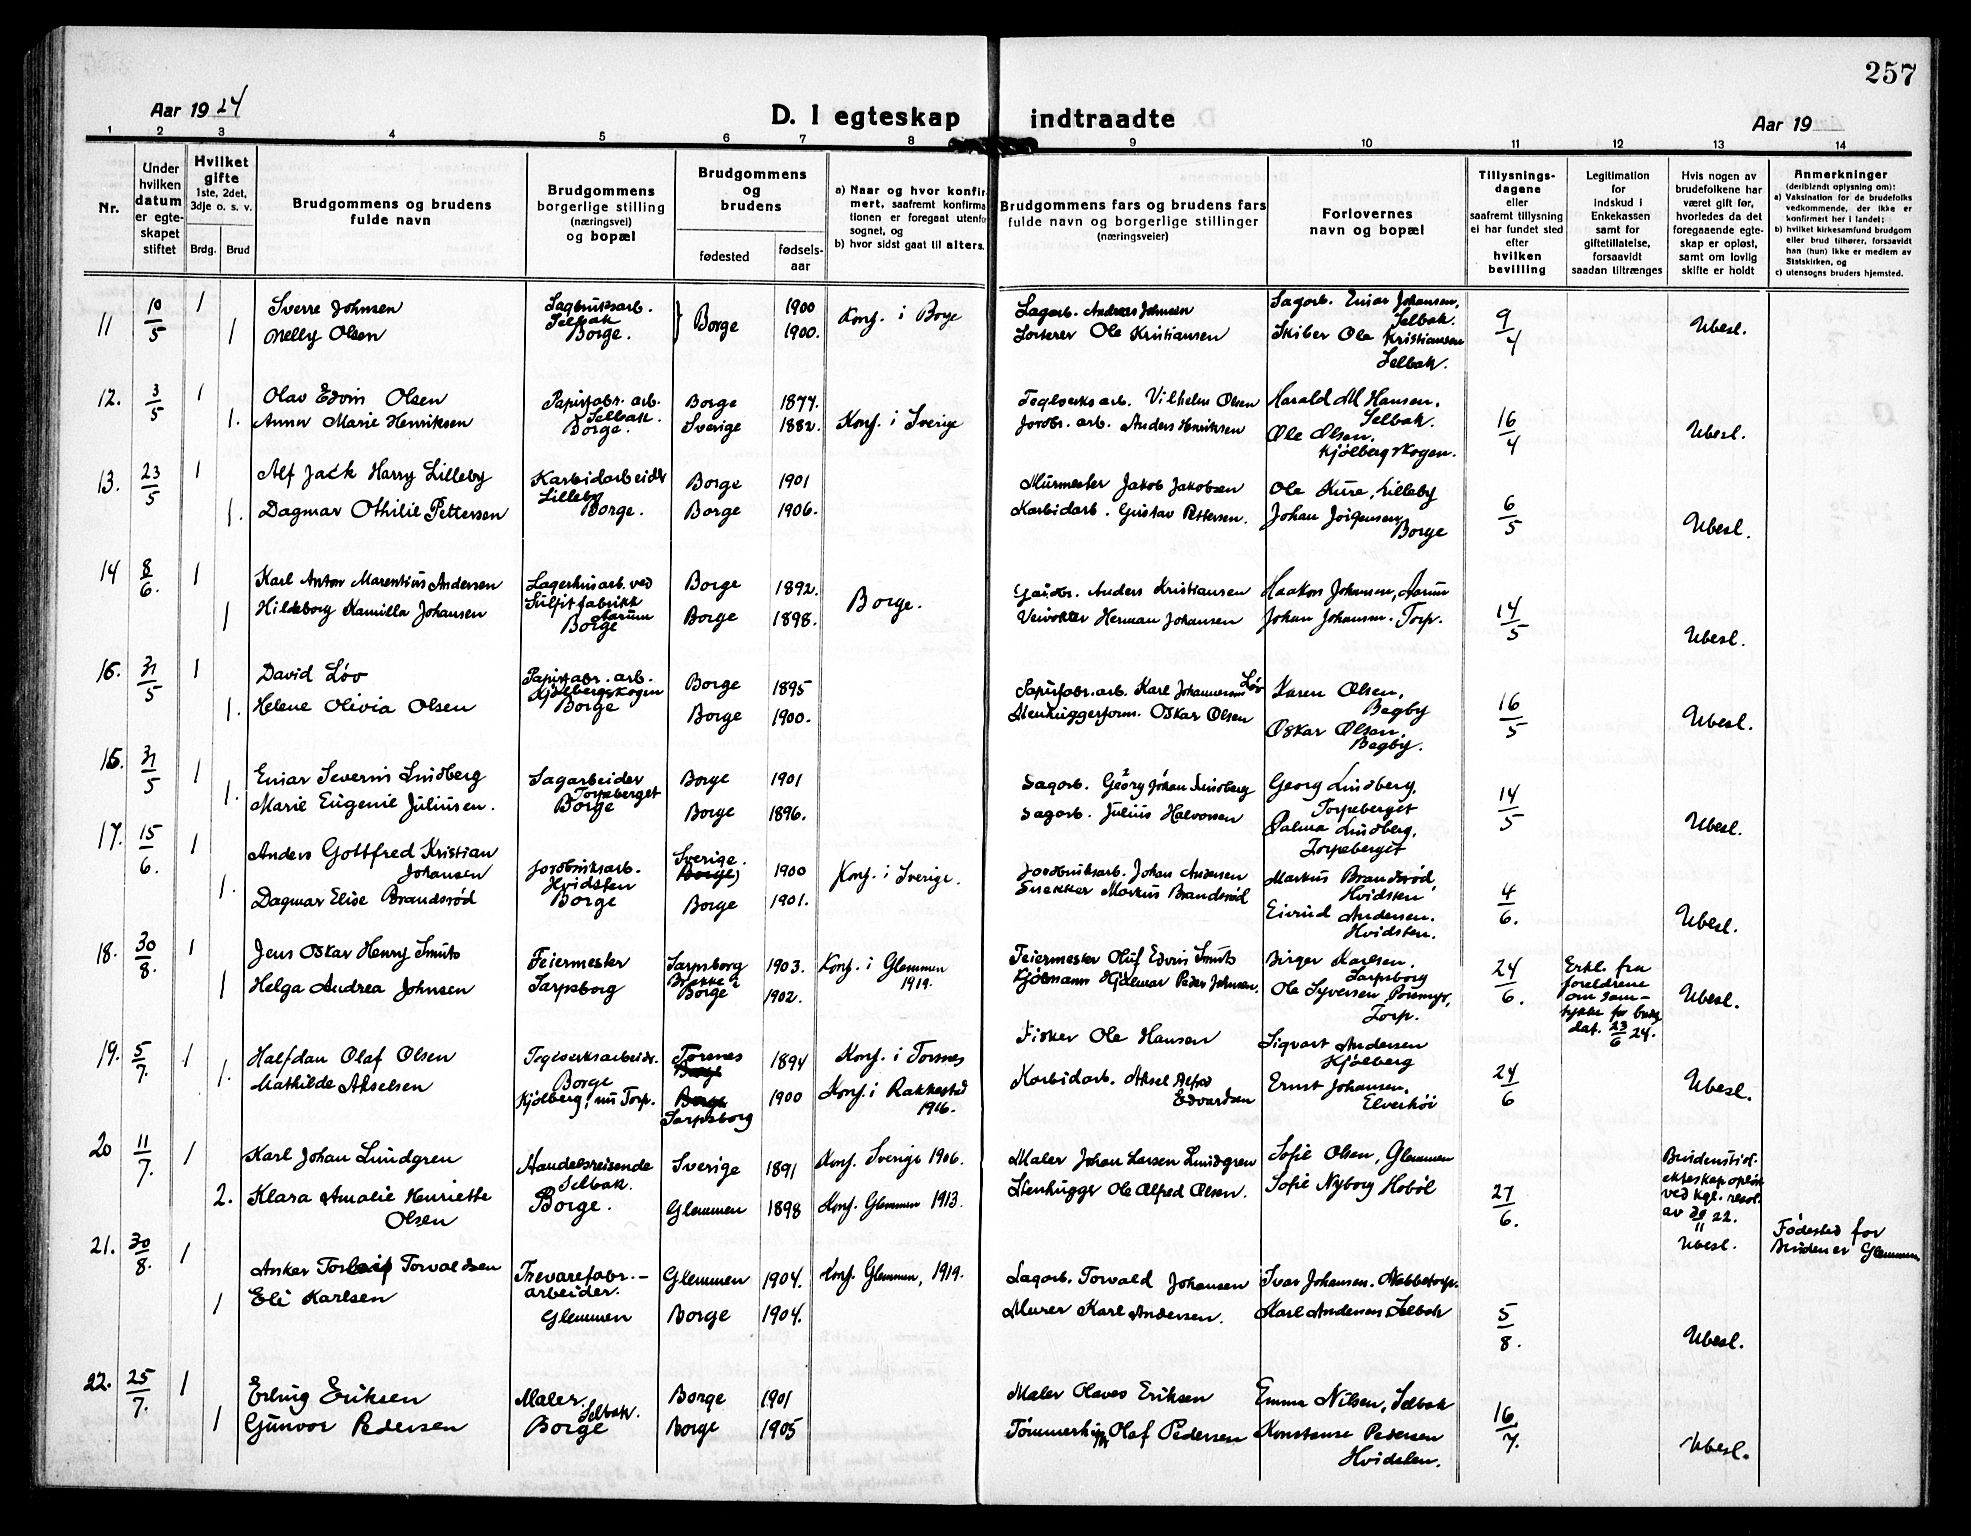 257
Aar 1924
D. I egteskap indtraadte
Aar 19
1 2 3 4 5 6 7 8 9 10 11 12 13 14
Nr.
Under hvilken datum er egteskapet stiftet
Hvilket gifte 1ste, 2det, 3dje o. s. v.
Brdg. Brud
Brudgommens og brudens fulde navn
Brudgommens borgerlige stilling (næringsvei) og bopæl
Brudgommens og brudens
fødested
fødselsaar
a) Naar og hvor konfirmert, saafremt konfirmationen er foregaat utenfor sognet, og
b) hvor sidst gaat til alters.
Brudgommens fars og brudens fars fulde navn og borgerlige stillinger (næringsveier)
Forlovernes navn og bopæl
Tillysningsdagene eller saafremt tillysning ei har fundet sted efter hvilken bevilling
Legitimation for indskud i Enkekassen samt for giftetillatelse, forsaavidt saadan tiltrænges
Hvis nogen av brudefolkene har været gift før, hvorledes da det foregaaende egteskap er opløst, samt om lovlig skifte er holdt
Anmerkninger (deriblandt oplysning om):
a) Vaksination for de brudefolks vedkommende, der ikke er konfirmert her i landet;
b) hvilket kirkesamfund brudgom eller brud tilhører, forsaavidt han (hun) ikke er medlem av Statskirken, og
c) utensogns bruders hjemsted.
11 10/5 1 Sverre Johnsen Sagbruksarb. Selbak Borge. } Borge 1900 Konf. i Borge Sagarb. Andreas Johnsen Sagarb. Einar Johansen, Selbak. 9/4 Ubesl.
1 Nelly Olsen 1900. Sorterer Ole Kristiansen Skiber Ole Kristiansen Selbak.
12. 3/5 1 Olav Edvin Olsen Papirfabr. arb. Selbak. Borge. Borge 1877. Teglverksarb. Vilhelm Olsen Harald M Hansen, Selbak. 16/4 Ubesl.
1. Anna Marie Henriksen Sverige 1882. Konf. i Sverige Jordbr. arb. Anders Henriksen Ole Olsen, Kjölbergskogen.
13. 23/5 1 Alf Jack Harry Lilleby Karbidarbeider Lilleby Borge. Borge 1901 Murmester Jakob Jakobsen Ole Kure, Lilleby 6/5 Ubesl.
1. Dagmar Othilie Pettersen Borge 1906. Karbidarb. Gustav Pettersen. Johan Jörgensen Borge
14 8/6. 1 Karl Anton Marentius Andersen Lagerhusarb. ved Sulfitfabrikk Aarum Borge Borge 1892. Borge. Gaardbr. Anders Kristiansen Haakon Johansen, Aarum 14/5 Ubesl.
1 Hildeborg Kamilla Johansen Borge 1898. Veivokter Herman Johansen Johan Johansen. Torp.
15. 31/5 1 David Löv Papirfabr. arb. Kjölbergskogen Borge Borge 1895 Papirfabr. arb. Karl Johannessen Löv Karen Olsen, Begby 16/5 Ubesl.
1. Helene Olivia Olsen Borge 1900. Stenhuggerform. Oskar Olsen Oskar Olsen, Begby.
16. 31/5 1 Einar Severin Lundberg Sagarbeider Torpeberget Borge Borge 1901 Sagarb. Georg Johan Lundberg Georg Lundberg, Torpeberget 14/5 Ubesl.
1. Marie Eugenie Juliussen. Borge 1896. Sagarb. Julius Halvorsen Palma Lundberg, Torpeberget
17. 15/6. 1 Anders Gottfred Kristian Johansen Jordbruksarb. Hvidsten Borge Sverige. Borge 1900 Konf. i Sverige. Jordbruksarb. Johan Andersen Markus Brandsröd, Hvidsten 4/6. Ubesl.
1. Dagmar Elise Brandsröd Borge 1901. Snekker Markus Brandsröd Eivind Andersen. Hvidsten.
18. 30/8. 1 Jens Oskar Henry Smuts Feiermester Sarpsborg Sarpsborg 1903. Konf. i Glemmen 1919. Feiermester Oluf Edvin Smuts Birger Karlsen. Sarpsborg 24/6. Erkl. fra foreldrene om samtykke for brudg dat. 23/6 24. Ubesl.
1 Helga Andrea Johnsen Brekke i Borge 1902. Kjörmann Hjalmar Peder Johnsen. Ole Syversen Poremyr, Torp.
19. 5/7. 1 Halfdan Olaf Olsen Teglverksarbeider. Borge Kjölberg, nu Torp. Torsnes Borge 1894 Konf. i Torsnes Fisker Ole Hansen Sigvart Andersen Kjölberg 24/6 Ubesl.
1. Mathilde Akselsen Borge Sarpsborg 1900 Konf. i Rakkestad 1916. Karbidarb. Aksel Alfred Edvardsen Ernst Johansen. Elverhöi
20 11/7. 1 Karl Johan Lundgren Handelsreisende Selbak. Borge. Sverige 1891 Konf. Sverige 1906. Maler Johan Larsen Lundgren Sofie Olsen, Glemmen 27/6.
2. Klara Amalie Henriette Olsen Glemmen 1898 Konf. Glemmen 1913. Stenhugger Ole Alfred Olsen. Sofie Nyborg Hoböl Brudens tidl. ekteskap oplöst ved kgl. resol. av 29/11 22. Ubesl. Födested for Bruden er Glemmen
21. 30/8. 1 Anker Torleif Torvaldsen Trevarefabr.-arbeider. Glemmen Glemmen 1904. Konf. Glemmen, 1919. Lagarb. Torvald Johansen Ivar Johansen. Nabbetorp. 5/8. Ubesl.
1 Eli Karlsen Borge 1904. Murer Karl Andersen. Karl Andersen Selbak
22. 25/7. 1 Erling Eriksen Maler. Selbak. Borge Borge 1901 Maler Olaves Eriksen Emma Nilsen, Selbak 16/7. Ubesl.
1 Gunvor Pedersen Borge 1905 Olaf Pedersen Konstanse Pedersen Hvidsten.